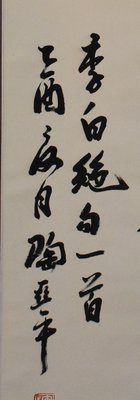 李白绝句一首
乙酉夏月陶亚平